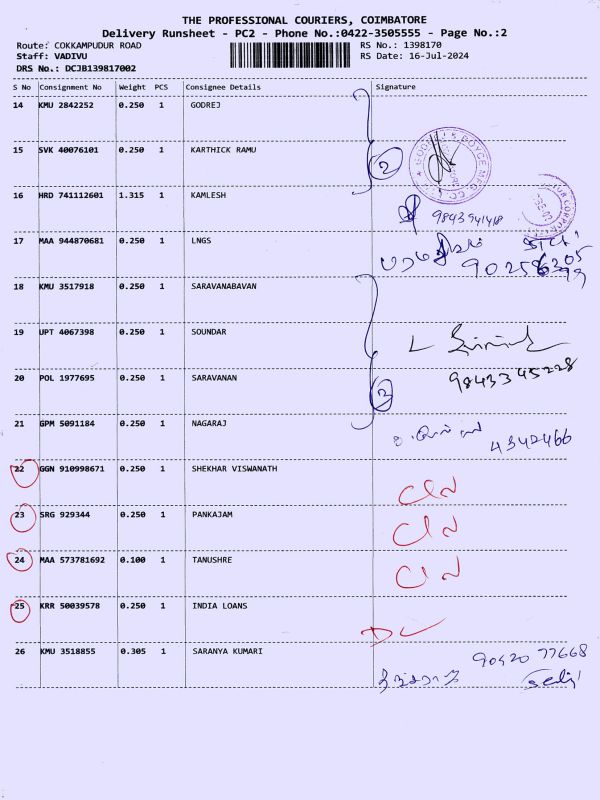 THE PROFESSIONAL COURIERS, COIMBATORE
Delivery Runsheet - PC2 - Phone No.:0422-3505555 - Page No.:2
Route: COKKAMPUDUR ROAD RS No.: 1398170
Staff: VADIVU RS Date: 16-Jul-2024
DRS No.: DCJB139817002
S No Consignment No Weight PCS Consignee Details Signature
14 KMU 2842252 0.250 1 GODREJ
15 SVK 40076101 0.250 1 KARTHICK RAMU
2
16 HRD 741112601 1.315 1 KAMLESH
9843941418
17 MAA 944870681 0.250 1 LNGS
18 KMU 3517918 0.250 1 SARAVANABAVAN
19 UPT 4067398 0.250 1 SOUNDAR
20 POL 1977695 0.250 1 SARAVANAN
9843345228
21 GPM 5091184 0.250 1 NAGARAJ
4342466
22 GGN 910998671 0.250 1 SHEKHAR VISWANATH
23 SRG 929344 0.250 1 PANKAJAM
24 MAA 573781692 0.100 1 TANUSHRE
25 KRR 50039578 0.250 1 INDIA LOANS
DL
26 KMU 3518855 0.305 1 SARANYA KUMARI
90420 77668